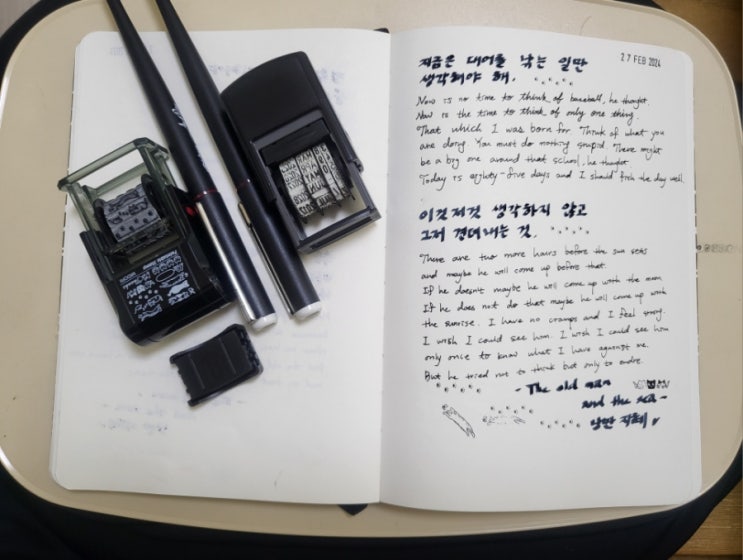 27 FEB 2024
지금은 대어를 낚는 일만
생각해야 해.
Now is no time to think of baseball, he thought.
Now is the time to think of only one thing.
That which I was born for. Think of what you
are doing. You must do nothing stupid. There might
be a big one around that school, he thought.
Today is eighty-five days and I should fish the day well.
이것저것 생각하지 않고
그저 견뎌내는 것.
There are two more hours before the sun sets
and maybe he will come up before that.
If he doesn't maybe he will come up with the moon.
If he does not do that maybe he will come up with
the sunrise. I have no cramps and I feel strong.
I wish I could see him. I wish I could see him
only once to know what I have against me.
But he tried not to think but only to endure.
- The old man
and the sea -
낭만 지혜